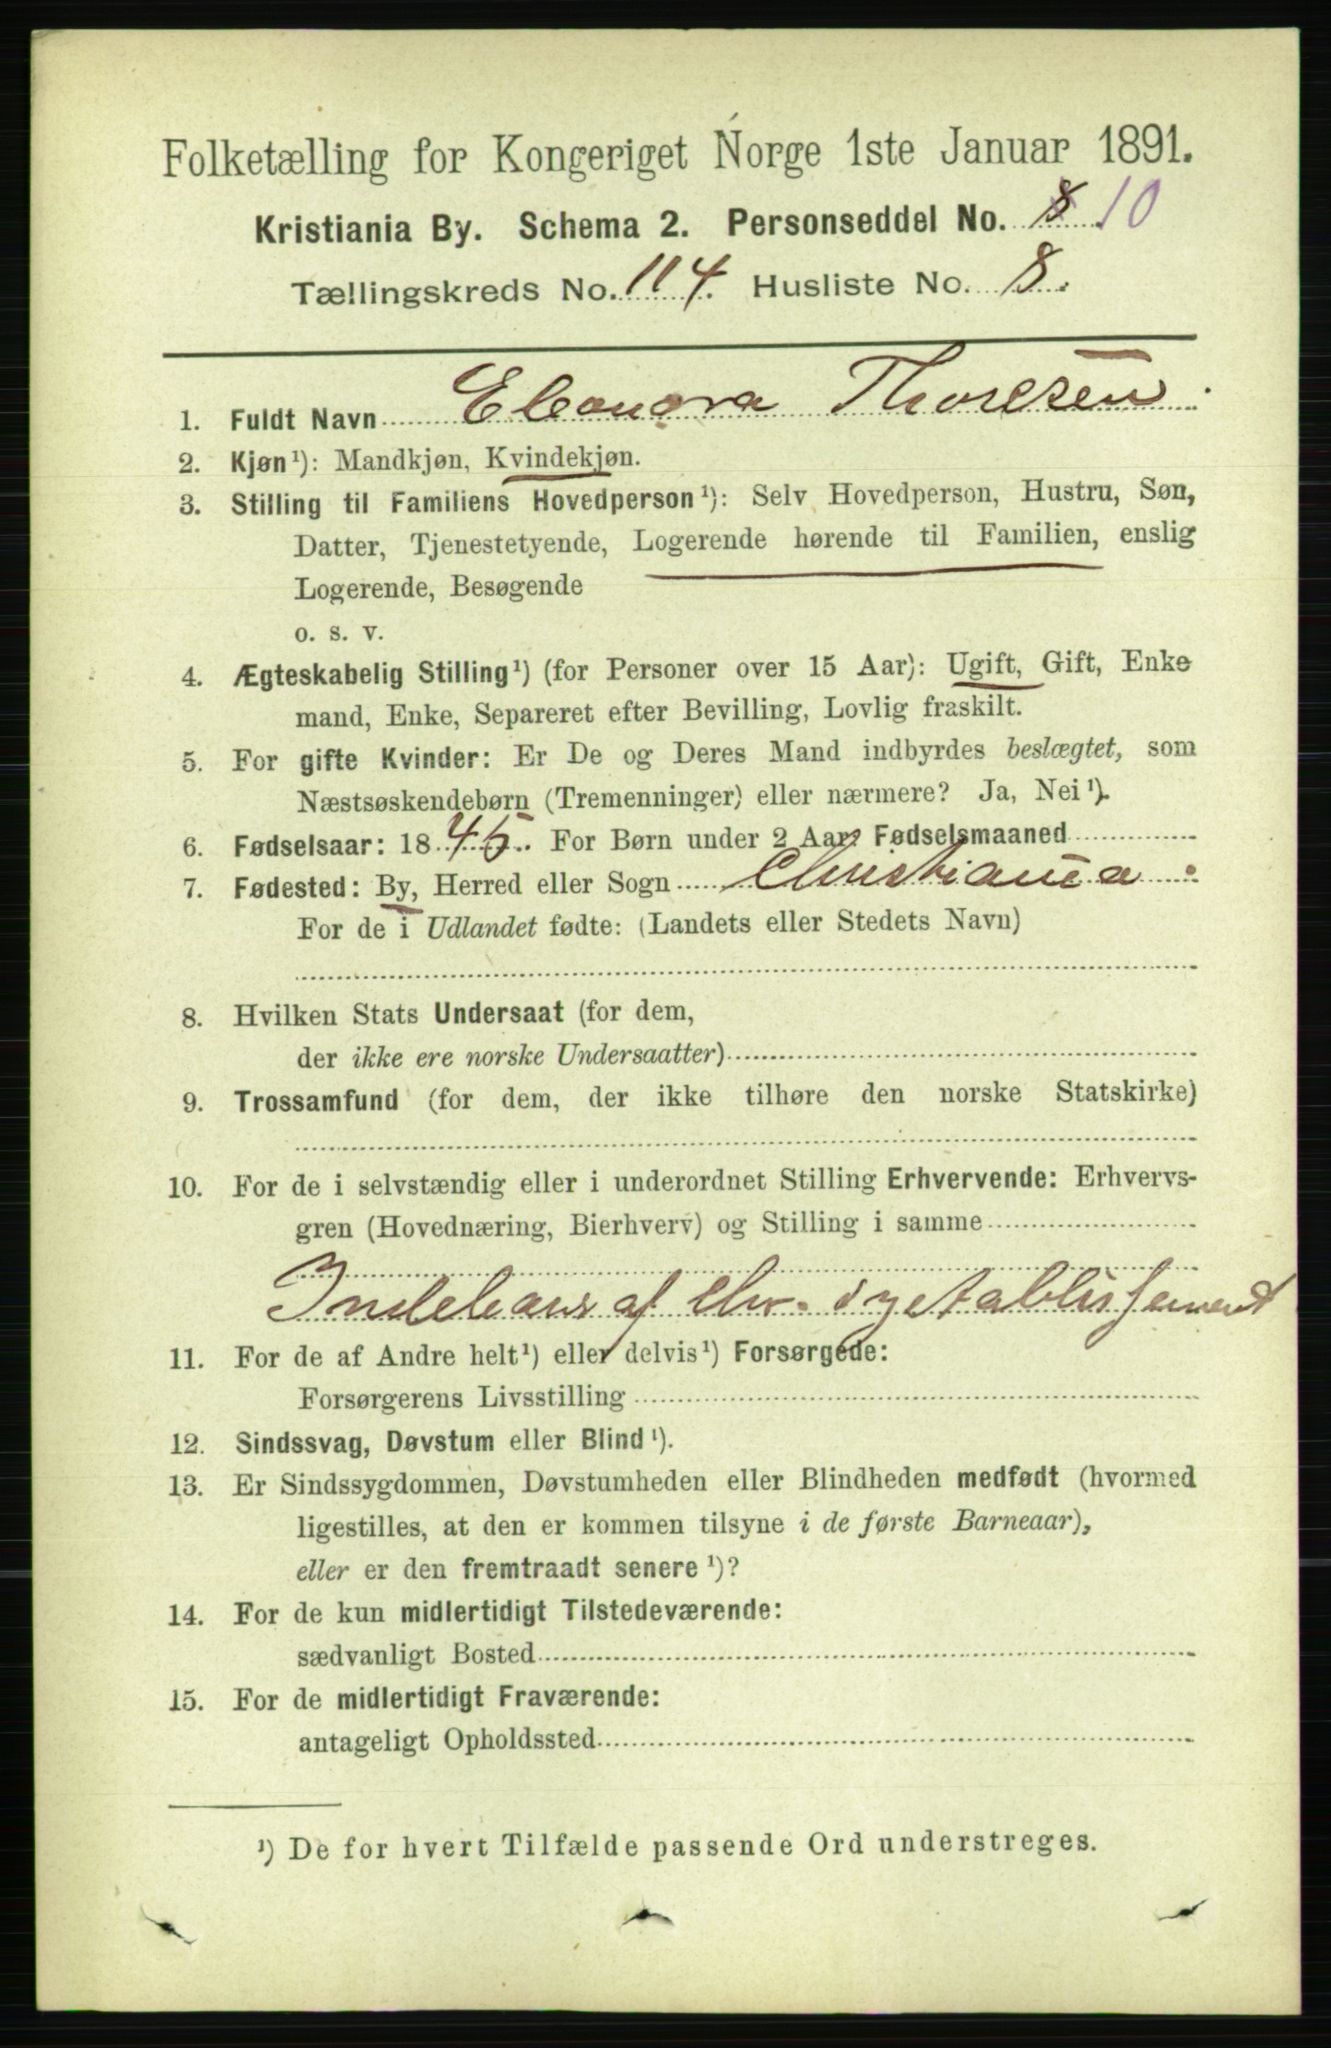 Folketælling for Kongeriget Norge 1ste Januar 1891.
Kristiania By. Schema 2. Personseddel No. 8 10
Tællingskreds No. 114. Husliste No. 8.
1. Fuldt Navn Eleonora Thoresen.
2. Kjøn¹): Mandkjøn, Kvindekjøn.
3. Stilling til Familiens Hovedperson¹): Selv Hovedperson, Hustru, Søn,
Datter, Tjenestetyende, Logerende hørende til Familien, enslig
Logerende, Besøgende
o. s. v.
4. Ægteskabelig Stilling¹) (for Personer over 15 Aar): Ugift, Gift, Enke
mand, Enke, Separeret efter Bevilling, Lovlig fraskilt.
5. For gifte Kvinder: Er De og Deres Mand indbyrdes beslægtet, som
Næstsøskendebørn (Tremenninger) eller nærmere? Ja, Nei¹).
6. Fødselsaar: 1845. For Børn under 2 Aar, Fødselsmaaned
7. Fødested: By, Herred eller Sogn Christiania.
For de i Udlandet fødte: (Landets eller Stedets Navn)
8. Hvilken Stats Undersaat (for dem,
der ikke ere norske Undersaatter)
9. Trossamfund (for dem, der ikke tilhøre den norske Statskirke)
10. For de i selvstændig eller i underordnet Stilling Erhvervende: Erhvervs-
gren (Hovednæring, Bierhverv) og Stilling i samme
af Chr.
11. For de af Andre helt¹) eller delvis¹) Forsørgede:
Forsørgerens Livsstilling
12. Sindssvag, Døvstum eller Blind¹).
13. Er Sindssygdommen, Døvstumheden eller Blindheden medfødt (hvormed
ligestilles, at den er kommen tilsyne i de første Barneaar),
eller er den fremtraadt senere¹)?
14. For de kun midlertidigt Tilstedeværende:
sædvanligt Bosted
15. For de midlertidigt Fraværende:
antageligt Opholdssted
¹) De for hvert Tilfælde passende Ord understreges.